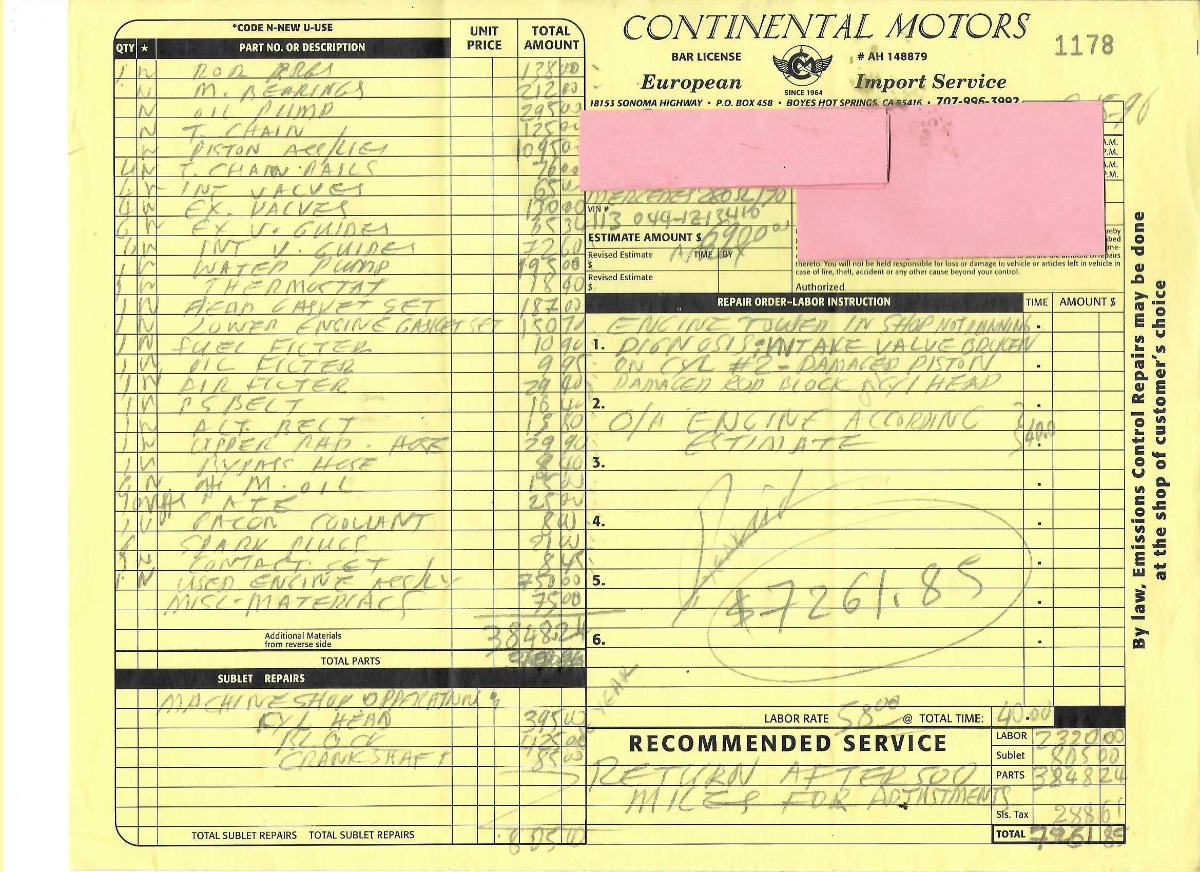 *CODE N-NEW U-USE
QTY * PART NO. OR DESCRIPTION UNIT PRICE TOTAL AMOUNT
1 N ROD BRGS 138 00
N M. BEARINGS 212 00
N OIL PUMP 295 00
N T. CHAIN 125 00
N PISTON 1095 0
4 N T. CHAIN RAILS
N INT VALVES 65
N EX. VALVES 130 00
6 N EX V. GUIDES 35
N INT V. GUIDES 72 60
1 N WATER PUMP 195 00
1 N THERMOSTAT 18 40
1 N HEAD GASKET SET 187 00
1 N LOWER ENGINE GASKET SET 150
1 N FUEL FILTER 10 90
1 N OIL FILTER 9 95
1 N AIR FILTER 29
1 N PS BELT 16 40
1 N ALT. BELT 15 80
1 N UPPER RAD. HOSE 29 90
1 N BYPASS HOSE 8 40
N M. OIL 15
25 00
1 COOLANT 8 00
6 SPARK PLUGS
N CONTACT SET 8 45
1 N USED ENGINE 750 00
MISL-MATERIALS 75 00
Additional Materials from reverse side 3848.24
TOTAL PARTS
SUBLET REPAIRS
MACHINE SHOP OPPERATIONS
CYL HEAD 395 00
BLOCK
CRANKSHAFT 85 00
TOTAL SUBLET REPAIRS TOTAL SUBLET REPAIRS 805 00
CONTINENTAL MOTORS
1178
BAR LICENSE # AH 148879
CM
European Import Service
SINCE 1964
18153 SONOMA HIGHWAY • P.O. BOX 458 • BOYES HOT SPRINGS, CA 95416 • 707-996-3992
A.M.
P.M.
A.M.
P.M.
MERCEDES 280SL/70
VIN # 113 044-1213410
ESTIMATE AMOUNT $ 6900 00
Revised Estimate $ TIME BY APPROX
Revised Estimate $
thereto. You will not be held responsible for loss or damage to vehicle or articles left in vehicle in
case of fire, theft, accident or any other cause beyond your control.
Authorized
REPAIR ORDER-LABOR INSTRUCTION TIME AMOUNT $
ENGINE TOWED IN SHOP NOT RUNNING
1. DIGNOSIS: INTAKE VALVE BROKEN
ON CYL #2 - DAMAGED PISTON
DAMAGED ROD BLOCK CYL HEAD
2.
O/H ENGINE ACCORDING
ESTIMATE 40.0
3.
4.
Paid
5.
$7261.85
6.
YEAR
LABOR RATE 58 00 @ TOTAL TIME: 40.00
RECOMMENDED SERVICE
RETURN AFTER 500
MILES FOR ADJUSTMENTS
LABOR 2320 00
Sublet 805 00
PARTS 3848 24
Sls. Tax 288 61
TOTAL 7261 85
By law, Emissions Control Repairs may be done
at the shop of customer's choice